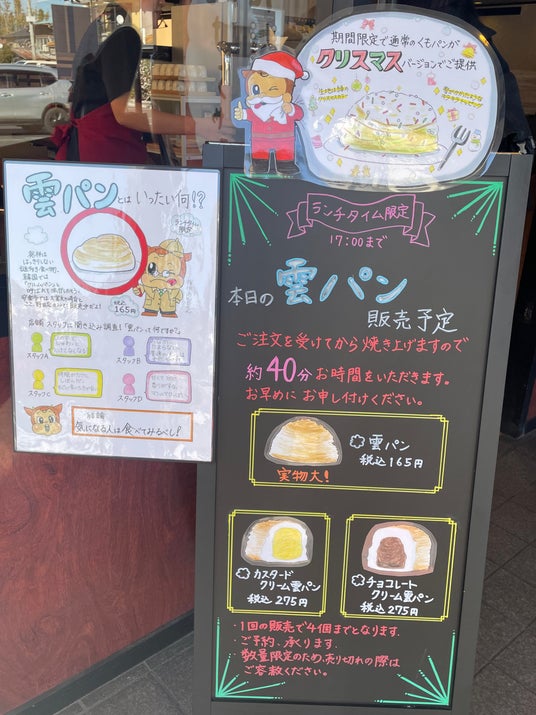 期間限定で通常のくもパンが
クリスマスバージョンでご提供
雲パンとは いったい何!?
ランチタイム限定
税込
165円
店舗スタッフに聞き込み調査!「雲パンって何ですか?」
スタッフA
スタッフB
スタッフC
スタッフD
結論
気になる人は食べてみるべし!
ランチタイム限定
17:00まで
本日の 雲パン
販売予定
ご注文を受けてから焼き上げますので
約40分お時間をいただきます。
お早めにお申し付けください。
雲パン
税込165円
実物大!
カスタード
クリーム雲パン
税込275円
チョコレート
クリーム雲パン
税込275円
・1回の販売で4個までとなります。
・ご予約、承ります。
・数量限定のため、売り切れの際は
ご容赦ください。